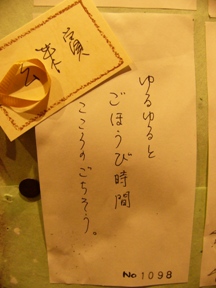 ゆるゆると
ごほうび時間
こころのごちそう。
No 1098